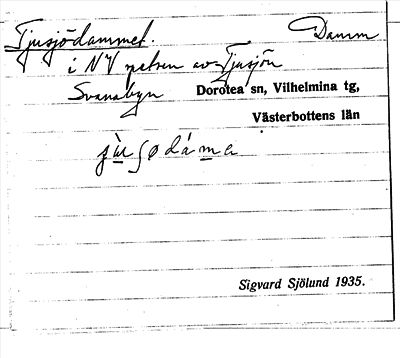 Tjusjödammet. Damm
i NV satsen av Tjusjön
Svanabyn Dorotea sn, Vilhelmina tg,
Västerbottens län
Sigvard Sjölund 1935.